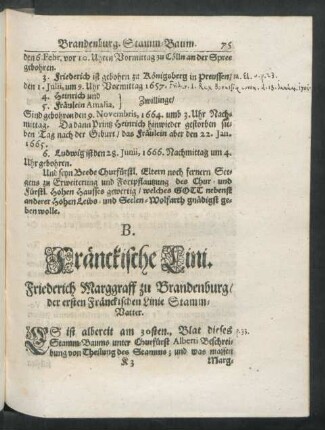 Brandenburg. Stamm-Baum. 75
den 6. Febr. vor 10. Uhren Vormittag zu Cölln an der Spree
gebohren.
3. Friederich ist gebohren zu Königsberg in Preussen/
den 1. Julii, um 9. Uhr Vormittag 1657.
4. Heinrich und
5. Fräulein Amalia, } Zwillinge/
Sind gebohren den 9. Novembris, 1664. umb 3. Uhr Nach-
mittag. Da dann Printz Heinrich hinwieder gestorben sie-
ben Tag nach der Geburt/ das Fräulein aber den 22. Jan.
1665.
6. Ludwig ist den 28. Junii, 1666. Nachmittag um 4.
Uhr gebohren.
Und seyn Beede Churfürstl. Eltern noch fernern See-
gens zu Erweiterung und Fortpflantzung des Chur- und
Fürstl. Hohen Hausses gewertig/ welches GOTT nebenst
anderer Hohen Leibs- und Seelen-Wolfarth gnädigst ge-
ben wolle.
B.
Fränckische Lini.
Friederich Marggraff zu Brandenburg/
der ersten Fränckischen Linie Stamm-
Vatter.
ES ist albereit am 30sten. Blat dieses
Stamm-Baums unter Churfürst Alberti Beschrei-
bung von Theilung des Stamms; und was massen
K 3 Marg-